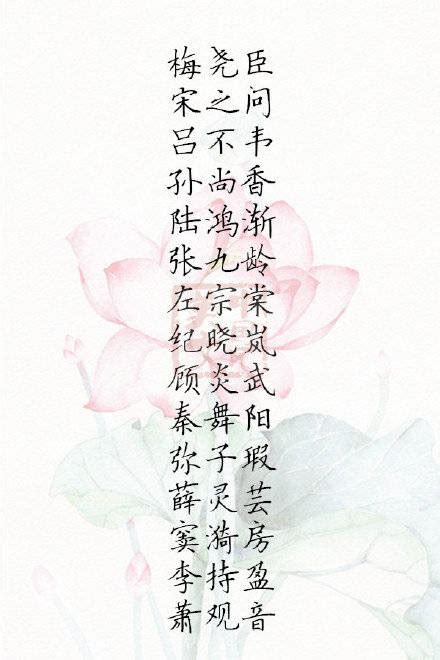 梅尧臣
宋之问
吕不韦
孙尚香
陆鸿渐
张九龄
左宗棠
纪晓岚
顾炎武
秦舞阳
弥子瑕
薛灵芸
窦漪房
李持盈
萧观音